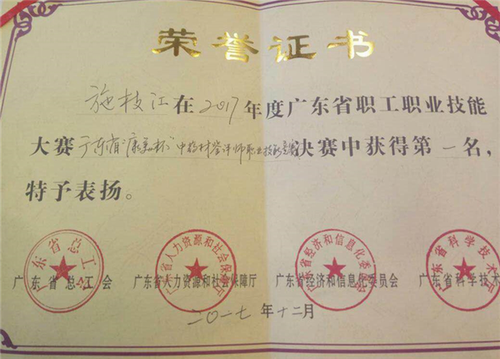 荣誉证书
施枝江在2017年度广东省职工职业技能
大赛广东省"康美杯"中药材鉴评师职业技能竞赛决赛中获得第一名,
特予表扬。
广东省总工会 广东省人力资源和社会保障厅 广东省经济和信息化委员会 广东省科学技术
广东省总工会 广东省人力资源和社会保障厅 广东省经济和信息化委员会 广东省科学技术
二〇一七年十二月